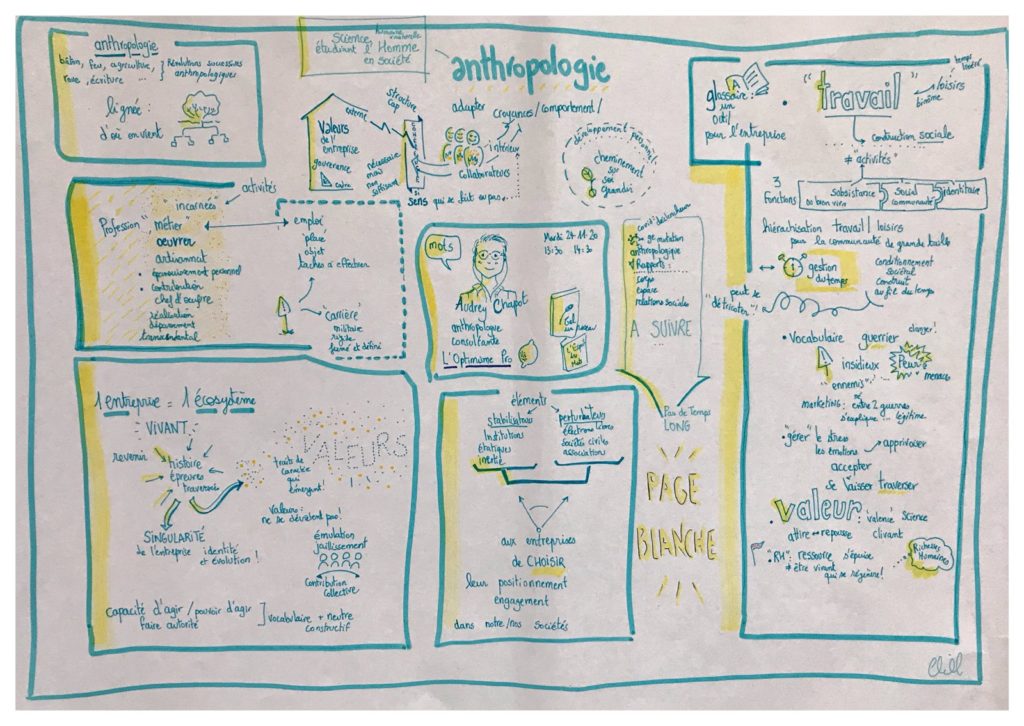 anthropologie
bâton, feu, agriculture,
roue, écriture ...
Révolutions successives
anthropologiques
lignée :
d'où on vient
Science
étudiant l'Homme
en société
anthropologie
adapter
croyances / comportement /
structure
Cap
externe
Valeurs
de l'
entreprise
gouvernance
nécessaire
mais
pas
suffisant
intérieur
collaborateurs
sens qui se fait ou pas...
développement personnel
cheminement
sur
soi
grandir
A
glossaire :
un
outil
pour l'entreprise
"travail"
loisirs
binôme
construction sociale
≠ activités
3
Fonctions
Subsistance
ou bien vivre
Social
communauté
identitaire
hiérarchisation travail loisirs
pour la communauté de grande taille
gestion
du temps
conditionnement
sociétal
construit
au fil du temps
"peut se
détricoter"
Vocabulaire guerrier
danger !
insidieux
Peur
menace
"ennemis"
marketing : entre 2 guerres
s'explique ... légitime
"gérer" le stress
les émotions
apprivoiser
accepter
se laisser traverser
valeur
: valence Science
attire ↔ repousse clivant
"RH" : ressource s'épuise
≠ être vivant
qui se régénère !
Richesses
Humaines
activités
"incarnées"
Profession "métier"
œuvrer
artisanat
• épanouissement personnel
• contribution
chef d'œuvre
réalisation
dépassement
transcendantal
emploi
place
objet
tâches à effectuer
"Carrière"
militaire
rigide
fermé et défini
mots
Mardi 24.11.20
13:30 14:30
Audrey Chapot
anthropologue
consultante
L'Optimisme Pro
covid : déclencheur
mutation
anthropologique
Rapports :
temps
espace
relations sociales
A SUIVRE
Pas de Temps
LONG
PAGE
BLANCHE
1 entreprise = 1 écosystème
VIVANT
revenir
histoire
épreuves
traversées
SINGULARITÉ
de l'entreprise identité
et évolution !
VALEURS
traits de
caractère
qui
émergent !
Valeurs :
ne se décrètent pas !
émulation
jaillissement
Contribution
Collective
capacité d'agir / pouvoir d'agir
faire autorité
vocabulaire + neutre
constructif
éléments
stabilisateurs
Institutions
étatiques
inertie
perturbateurs
électrons libres
sociétés civiles
associations
aux entreprises
de CHOISIR
leur positionnement
engagement
dans notre/nos sociétés